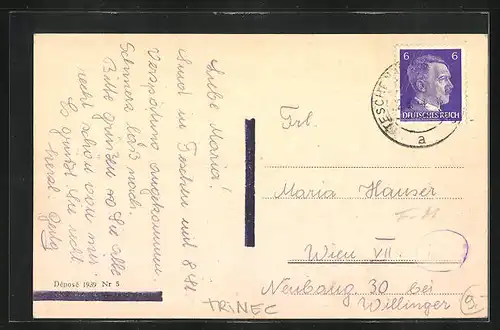 Liebe Maria!
Sind in Teschen mit 8 St.
Verspätung angekommen
Schmerz läßt nach.
Bitte grüßen Sie alle
recht schön von mir.
Es grüßt Sie recht
herzl.
Déposé 1939 Nr 5
TRINEC
6 6
DEUTSCHES REICH
TESCHEN
a
Frl.
Maria Hauser
Wien VII.
Neubaug 30 bei
Willinger